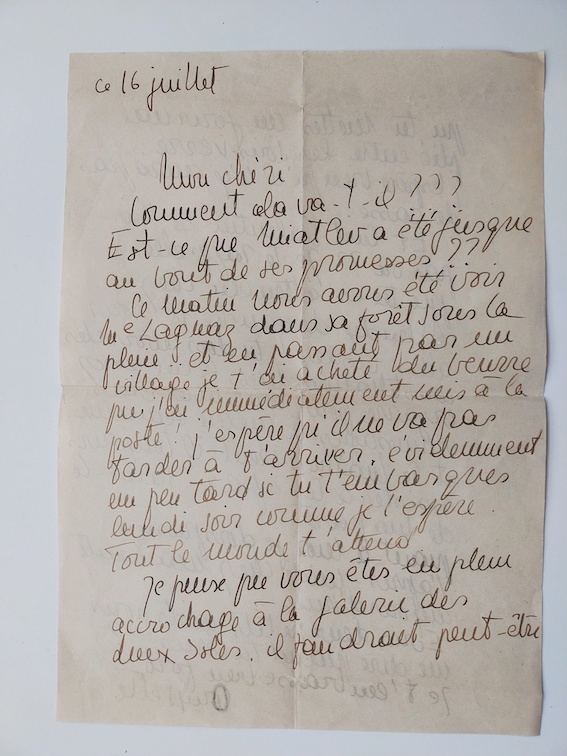 ce 16 juillet
Mon chéri
Comment cela va-t-il ???
Est-ce que Miatlev a été jusque
au bout de ses promesses ??
Ce matin nous avons été voir
Me Lagnaz dans sa forêt sous la
pluie : et en passant par un
village je t'ai acheté du beurre
que j'ai immédiatement mis à la
poste ! j'espère qu'il ne va pas
tarder à t'arriver, évidemment
un peu tard si tu t'embarques
lundi soir comme je l'espère.
Tout le monde t'attend
Je pense que vous êtes en plein
accrochage à la galerie des
deux Isles. il faudrait peut-être